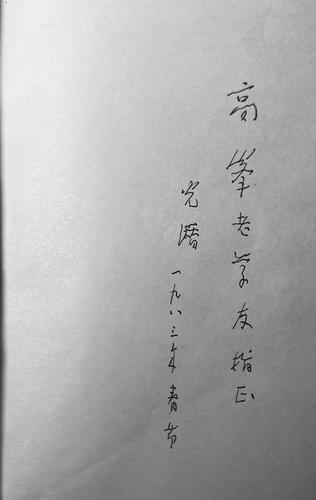 高峯老学友指正
光潜 一九八三年春节